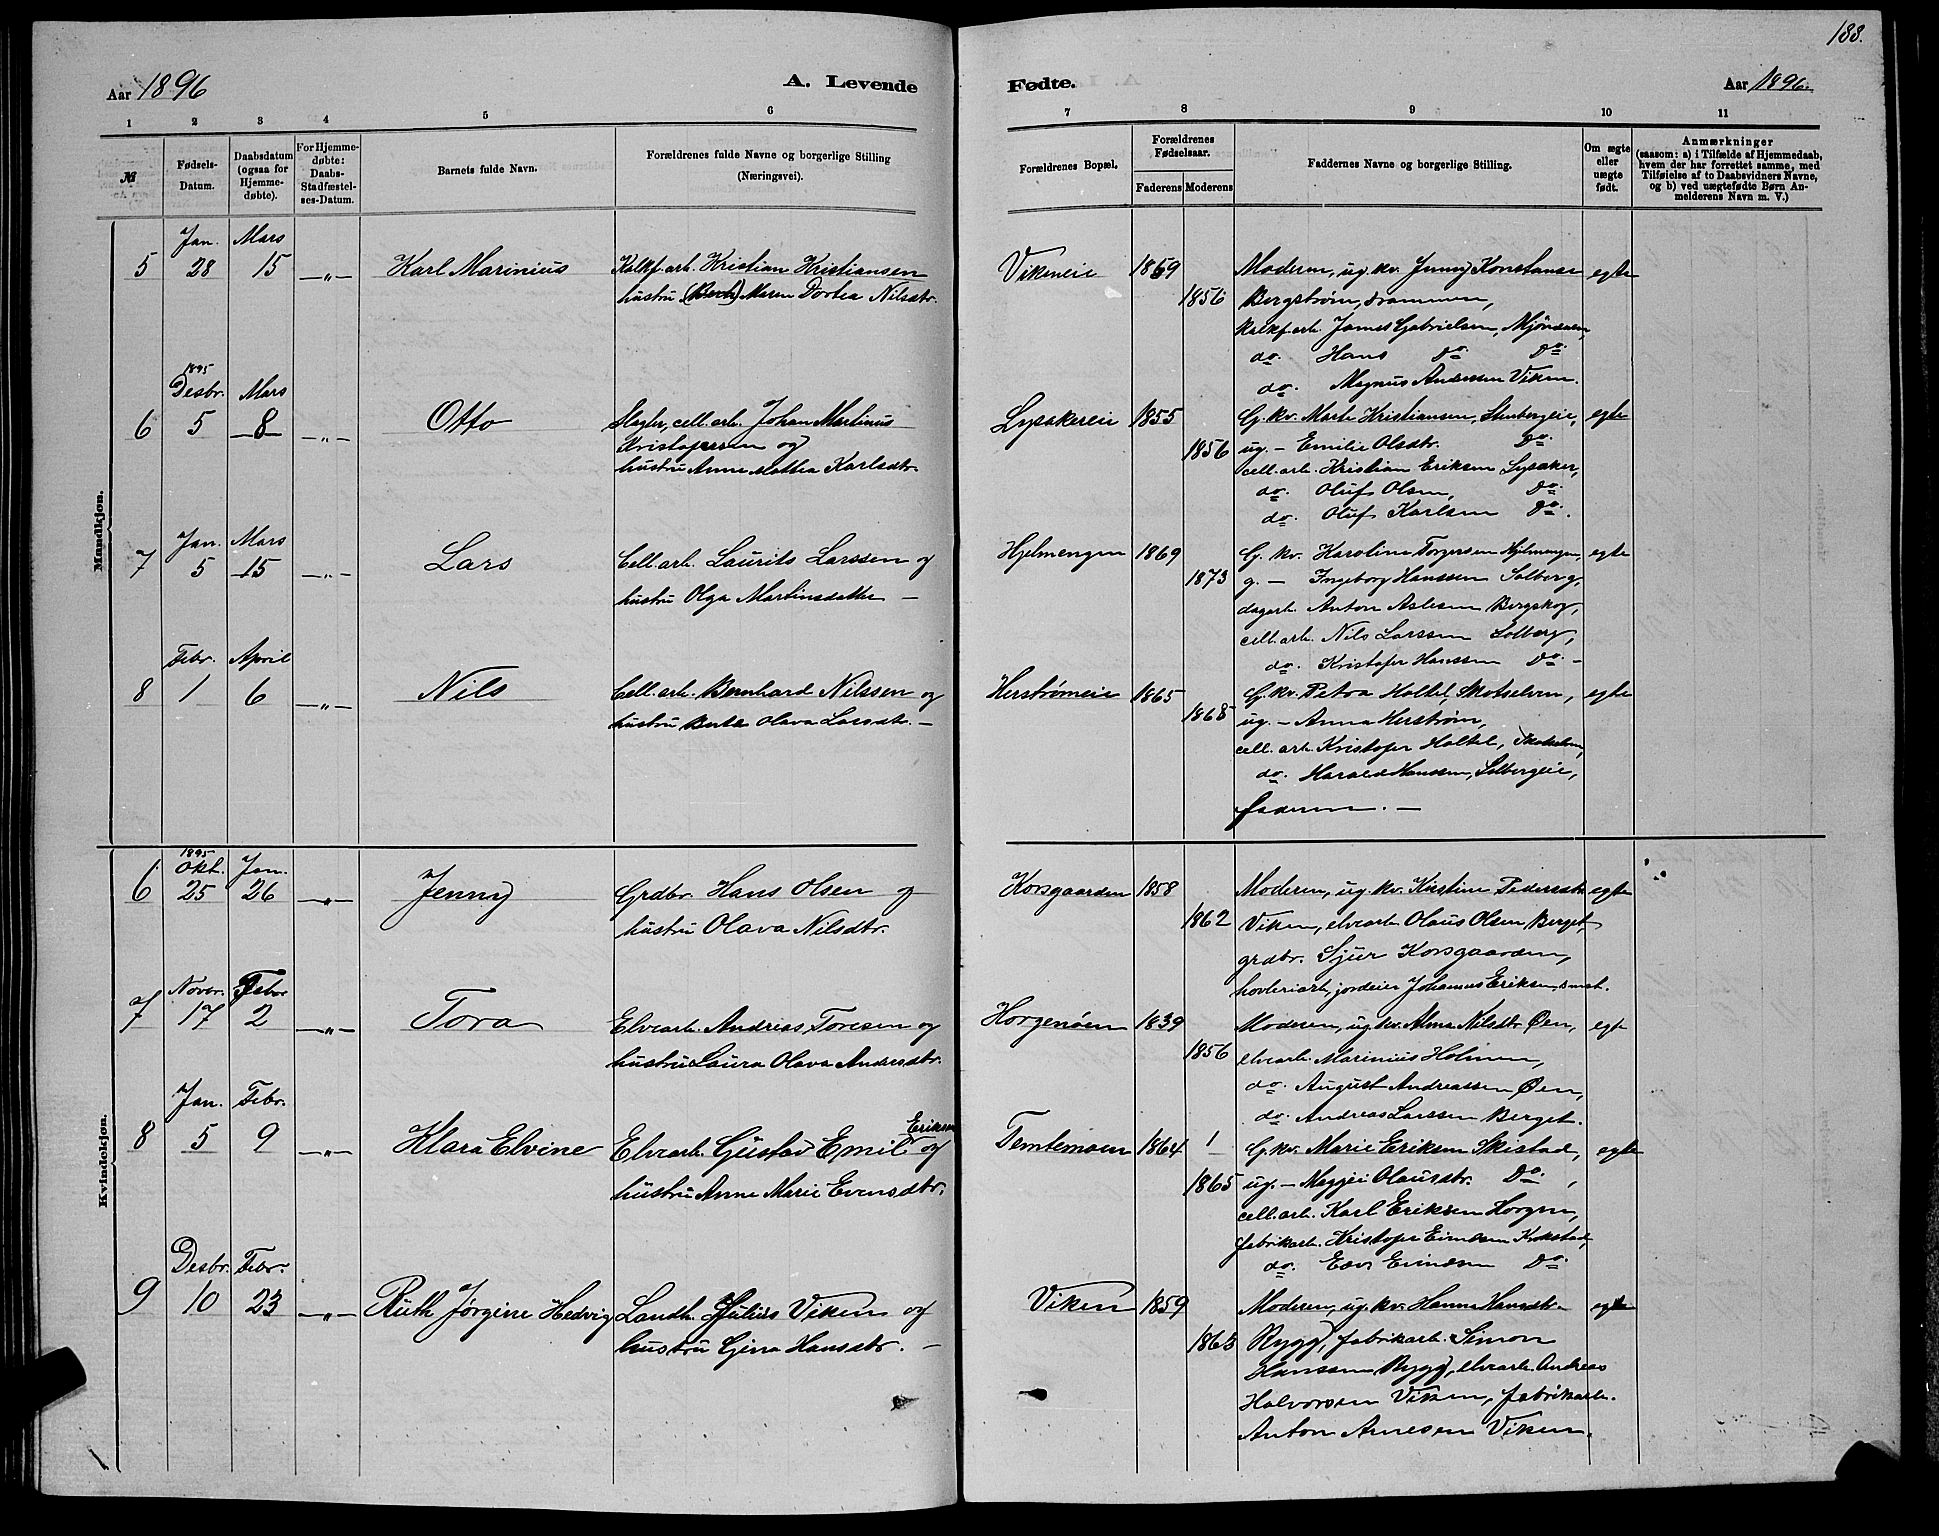 188.
Aar 1896
A. Levende
Fødte.
Aar 1896.
1 2 3 4 5 6 7 8 9 10 11
№
Fødsels-Datum.
Daabsdatum (ogsaa for Hjemme-døbte).
For Hjemme-døbte: Daabs-Stadfæstel-ses-Datum.
Barnets fulde Navn.
Forældrenes fulde Navne og borgerlige Stilling (Næringsvei).
Forældrenes Bopæl.
Forældrenes Fødselsaar.
Faderens Moderens
Faddernes Navne og borgerlige Stilling.
Om ægte eller uægte født.
Anmærkninger
(saasom: a) i Tilfælde af Hjemmedaab, hvem der har forrettet samme, med Tilføielse af to Daabsvidners Navne, og b) ved uægtefødte Børn An-melderens Navn m. V.)
Mandkjøn.
Jan. Mars
5 28 15 —„— Karl Marinius Kalkf.arb. Kristian Kristiansen
hustru Maren Dortea Nilsdtr.
Vikeneie 1869 1856
Moderen, ug. kv. Jenny Konstanse
Bergstrøm, Drammen,
kalkf.arb. James Gabrielsen, Mjøndalen,
do. Hans Do. Do.
do. Magnus Andersen Viken.
egte
1895
Desbr. Mars
6 5 8 —„— Otto Slagter, cell. arb. Johan Martinus
Kristofersen og
hustru Anne Mathea Karlsdtr.
Lysakereie 1855 1856
G. kv. Marte Kristiansen, Stenbergeie,
ug. — Emilie Olsdtr. Do.
cell. arb. Kristian Eriksen Lysaker,
do. Oluf Olsen, Do.
do. Oluf Karlsen Do.
egte
Jan. Mars
7 5 15 —„— Lars Cell. arb. Laurits Larssen og
hustru Olga Martinsdatter —
Hjelmengen 1869 1873
G. kv. Karoline Torgersen Hjelmengen,
g. — Ingeborg Hanssen Solberg,
dagarb. Anton Aslesen Bergskog,
cell. arb. Nils Larssen Solberg,
do. Kristofer Hanssen Do. —
egte
Febr. April
8 1 6 —„— Nils Cell. arb. Bernhard Nilssen og
hustru Berte Olava Larsdtr. —
Herstrømeie 1865 1868
G. kv. Petra Holtet, Skotselven,
ug. — Anna Herstrøm,
cell. arb. Kristofer Holtet, Skotselven,
do. Harald Hanssen, Solbergeie,
faderen. —
egte
Kvindekjøn.
1895
Okt. Jan.
6 25 26 —„— Jenny Grdbr. Hans Olsen og
hustru Olava Nilsdtr.
Korsgaarden 1858 1862
Moderen, ug. kv. Kirstine Pedersdtr.
Viken, elvearb. Olaus Olsen Berget,
grdbr. Sjur Korsgaarden,
høvleriarb., jordeier Johannes Eriksen,
egte
Novbr. Febr
7 17 2 —„— Tora Elvearb. Andreas Toresen og
hustru Laura Olava Andersdtr.
Horgenøen 1839 1856
Moderen, ug. kv. Alma Nilsdtr. Øen,
elvearb. Marinius Holmen,
do. August Andreassen Øen,
do. Andreas Larssen Berget.
egte
Jan. Febr.
8 5 9 —„— Klara Elvine Elvearb. Gustav Emil Eriksen og
hustru Anne Marie Evensdtr.
Temtemoen 1864 1865
G. kv. Marie Eriksen Skistad,
ug. — Olausdtr. Do.,
cell. arb. Karl Eriksen Horgen,
fabrikarb. Kristofer Evensen Krokstad,
do. Do.
egte
Desbr. Febr.
9 10 23 —„— Ruth Jørgine Hedvig Landh. Julius Viken og
hustru Gina Hansdtr. —
Viken 1859 1863
Moderen, ug. kv. Hanna Hansdtr.
Rygg, fabrikarb. Simon
Hanssen Rygg, elvearb. Andreas
Halvorsen Viken, fabrikarb.
Anton Arnesen Viken.
egte